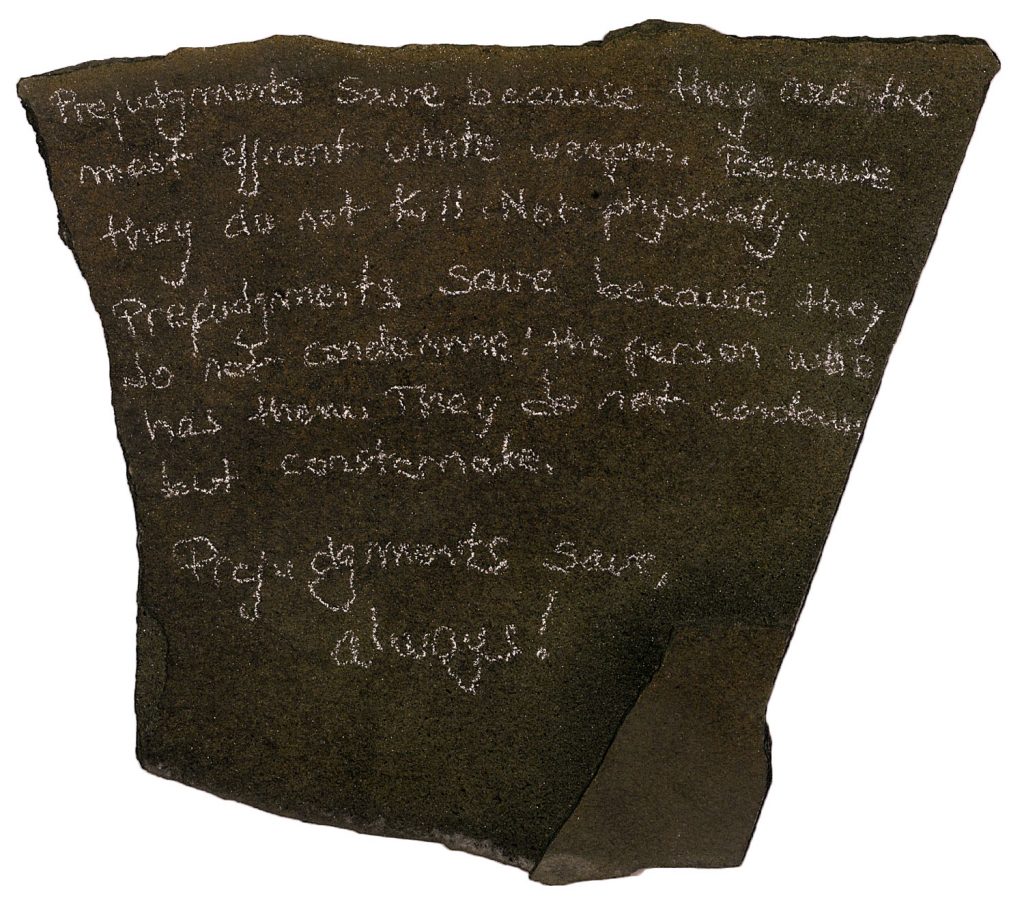 Prejudgments save because they are the
most efficent white weapon. Because
they do not kill. Not physically.
Prejudgments save because they
do not condamne! the person who
has them. They do not condamn
but consternate.
Prejudgments save,
always!